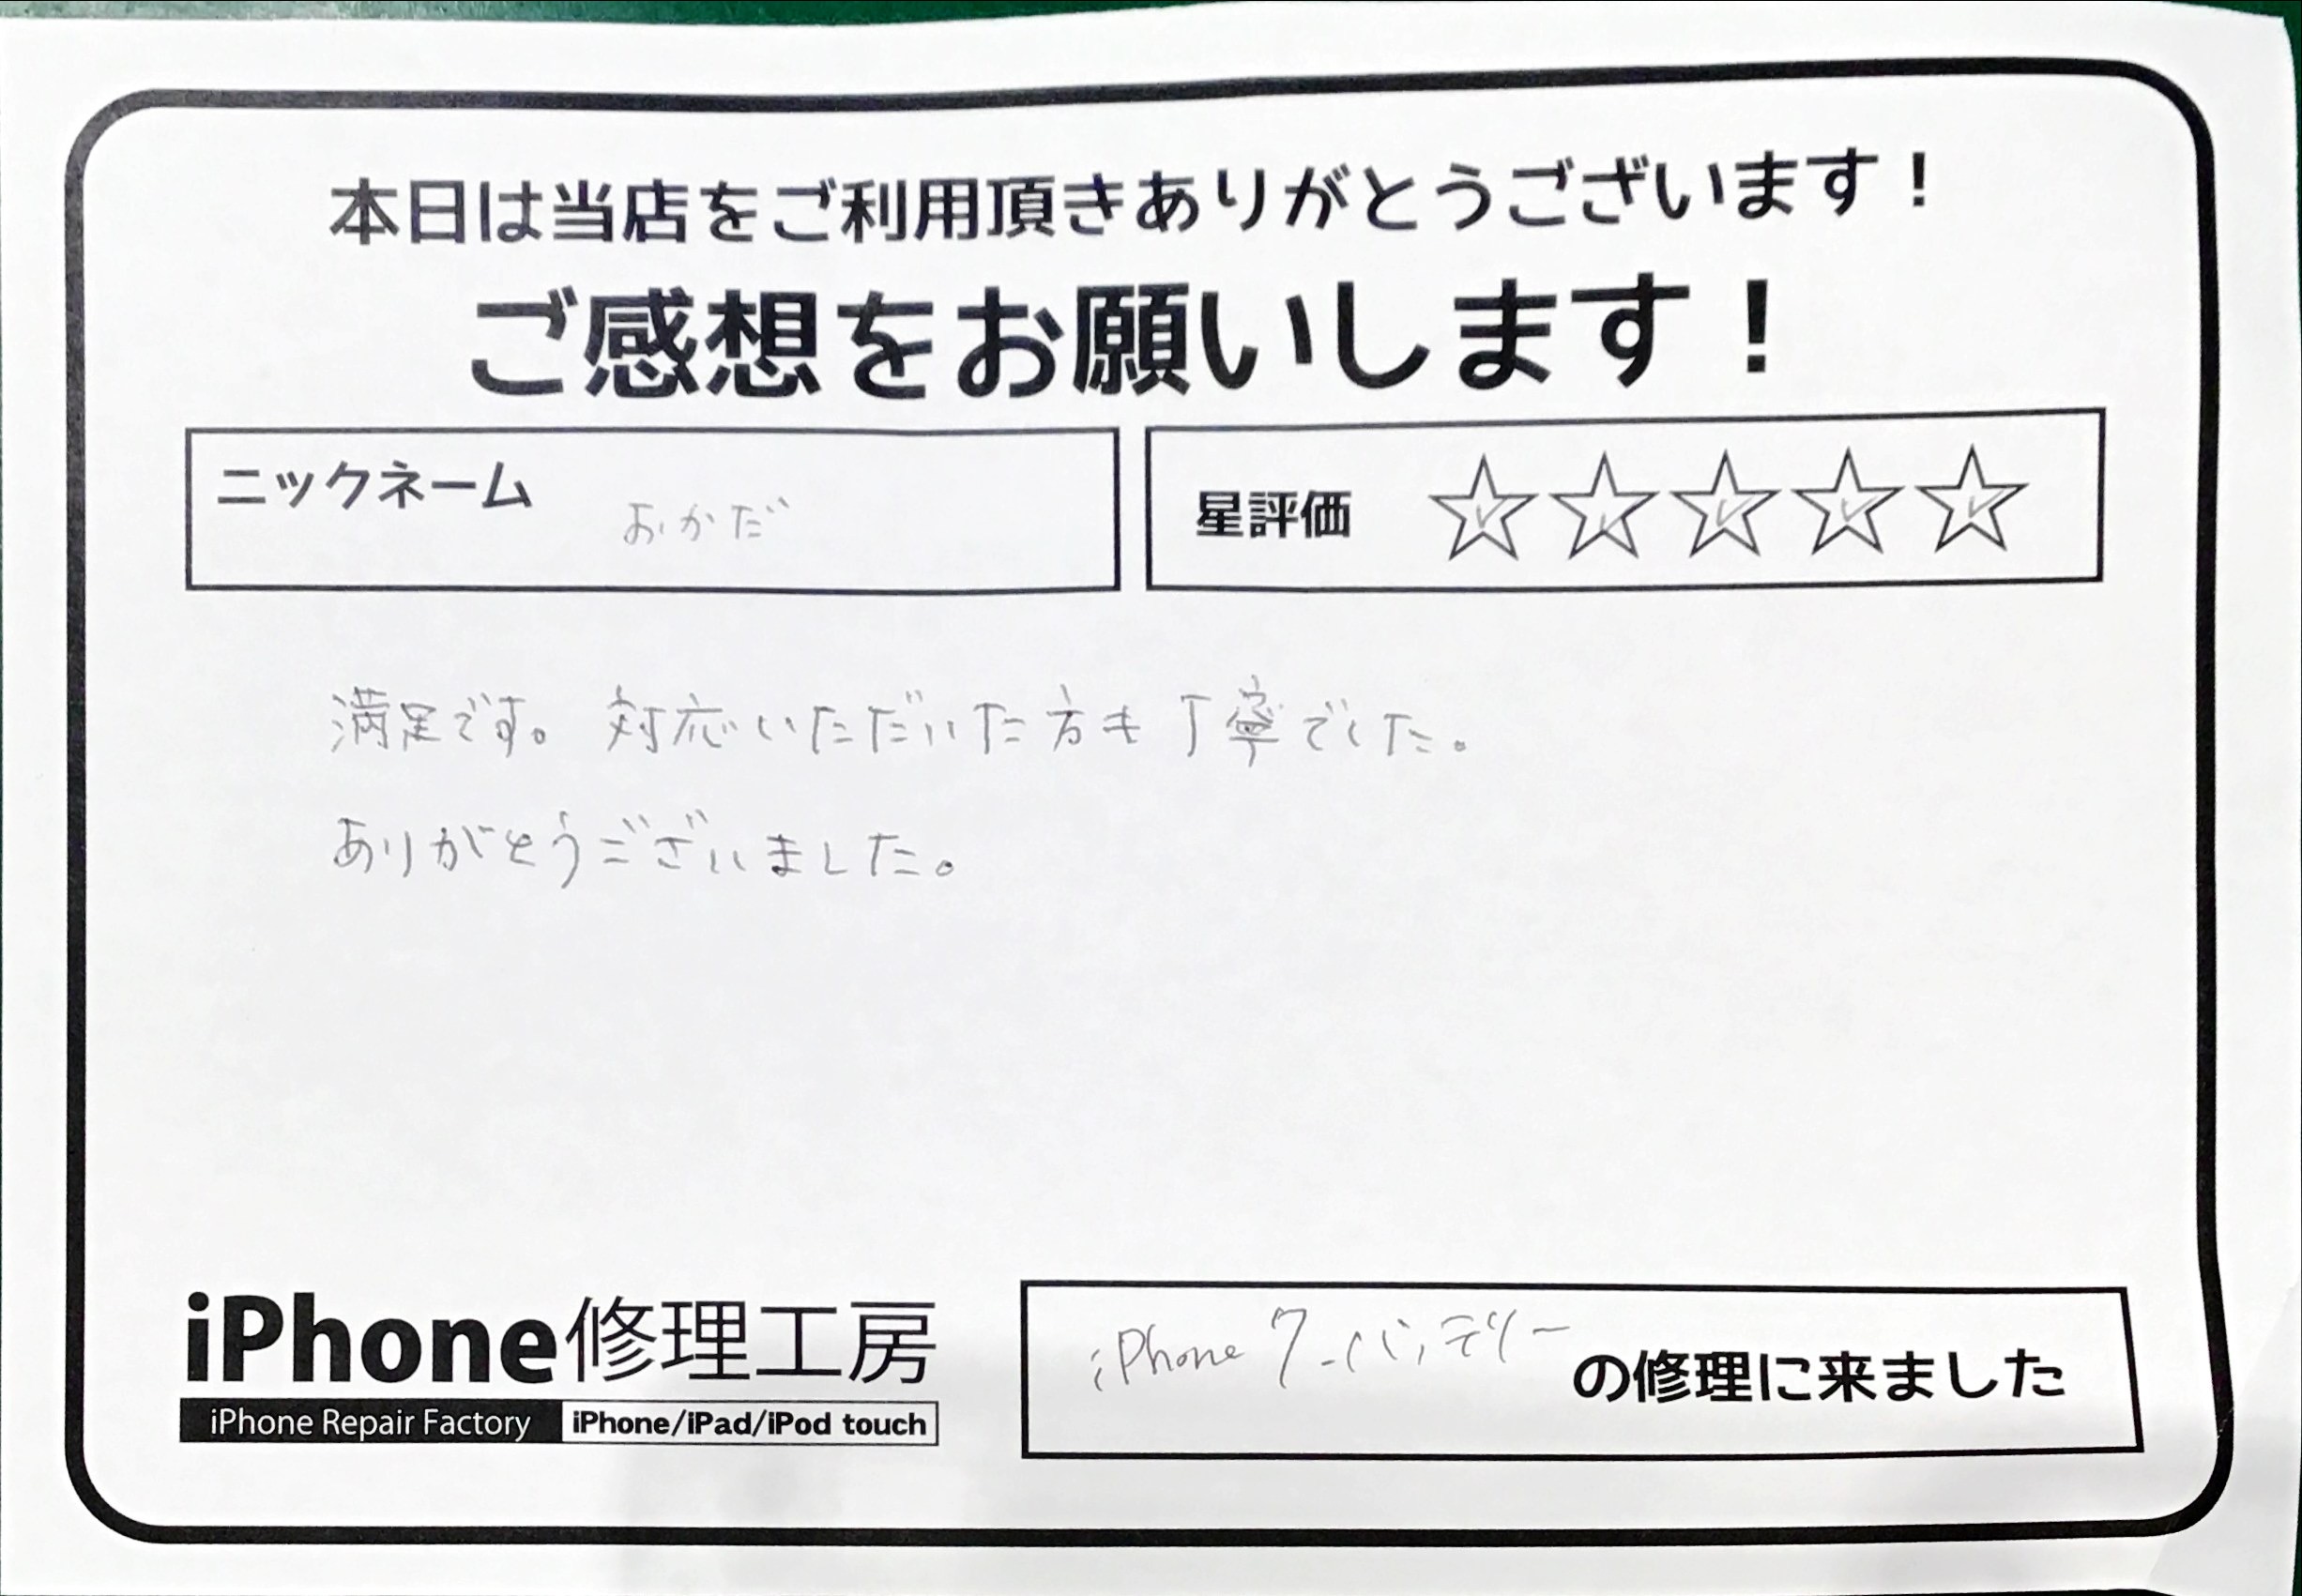 本日は当店をご利用頂きありがとうございます！
ご感想をお願いします！
ニックネーム おかだ
星評価 ☆☆☆☆☆
満足です。対応いただいた方も丁寧でした。
ありがとうございました。
iPhone修理工房
iPhone Repair Factory iPhone/iPad/iPod touch
iPhone 7 バッテリー の修理に来ました